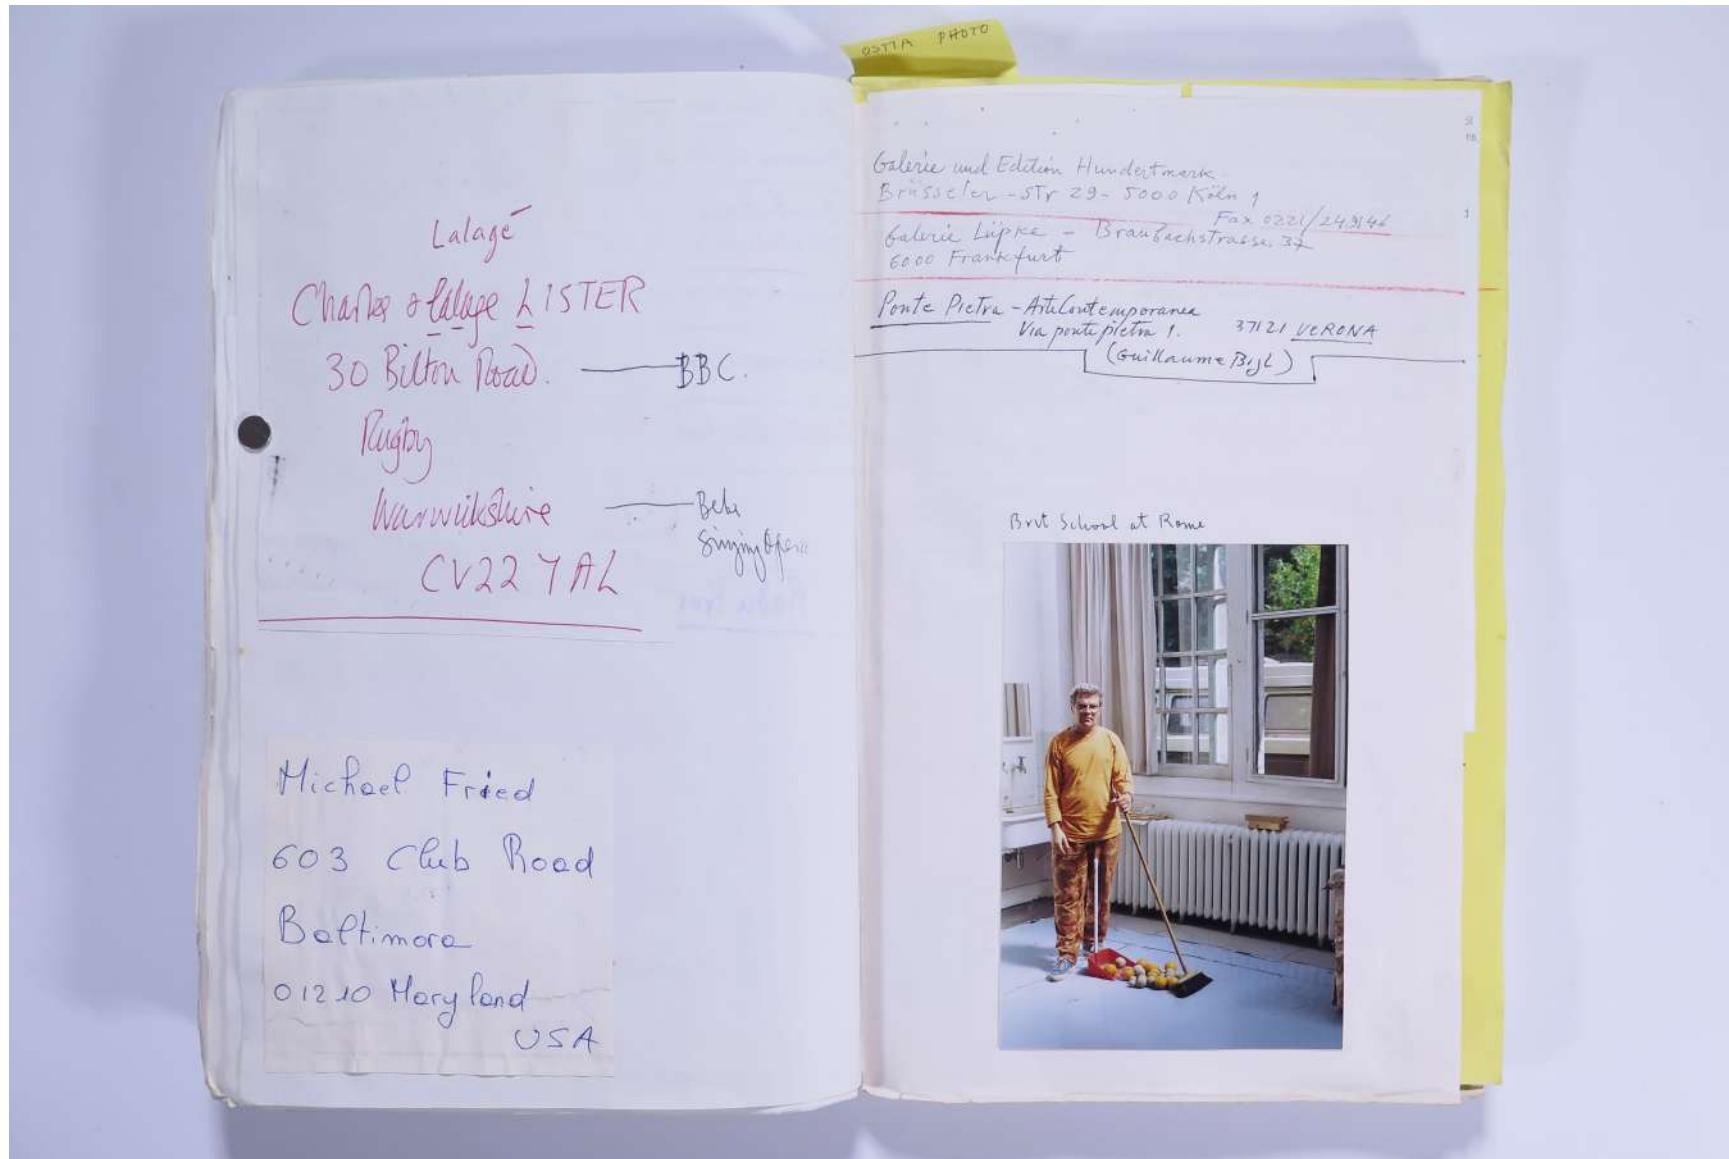 OSTIA PHOTO
Lalagé
Charles & Lalage LISTER
30 Bilton Road. BBC.
Rugby
Warwickshire Bebe
Singing Opera
CV22 7AL
Michael Fried
603 Club Road
Baltimore
01210 Maryland
USA
Galerie und Edition Hundertmark
Brüsseler - Str 29 - 5000 Köln 1
Fax 0221/
Galerie Lüpke - Braubachstrasse 37
6000 Frankfurt
Ponte Pietra - Arte Contemporanea
Via ponte pietra 1. 37121 VERONA
(Guillaume Bijl)
Brit School at Rome